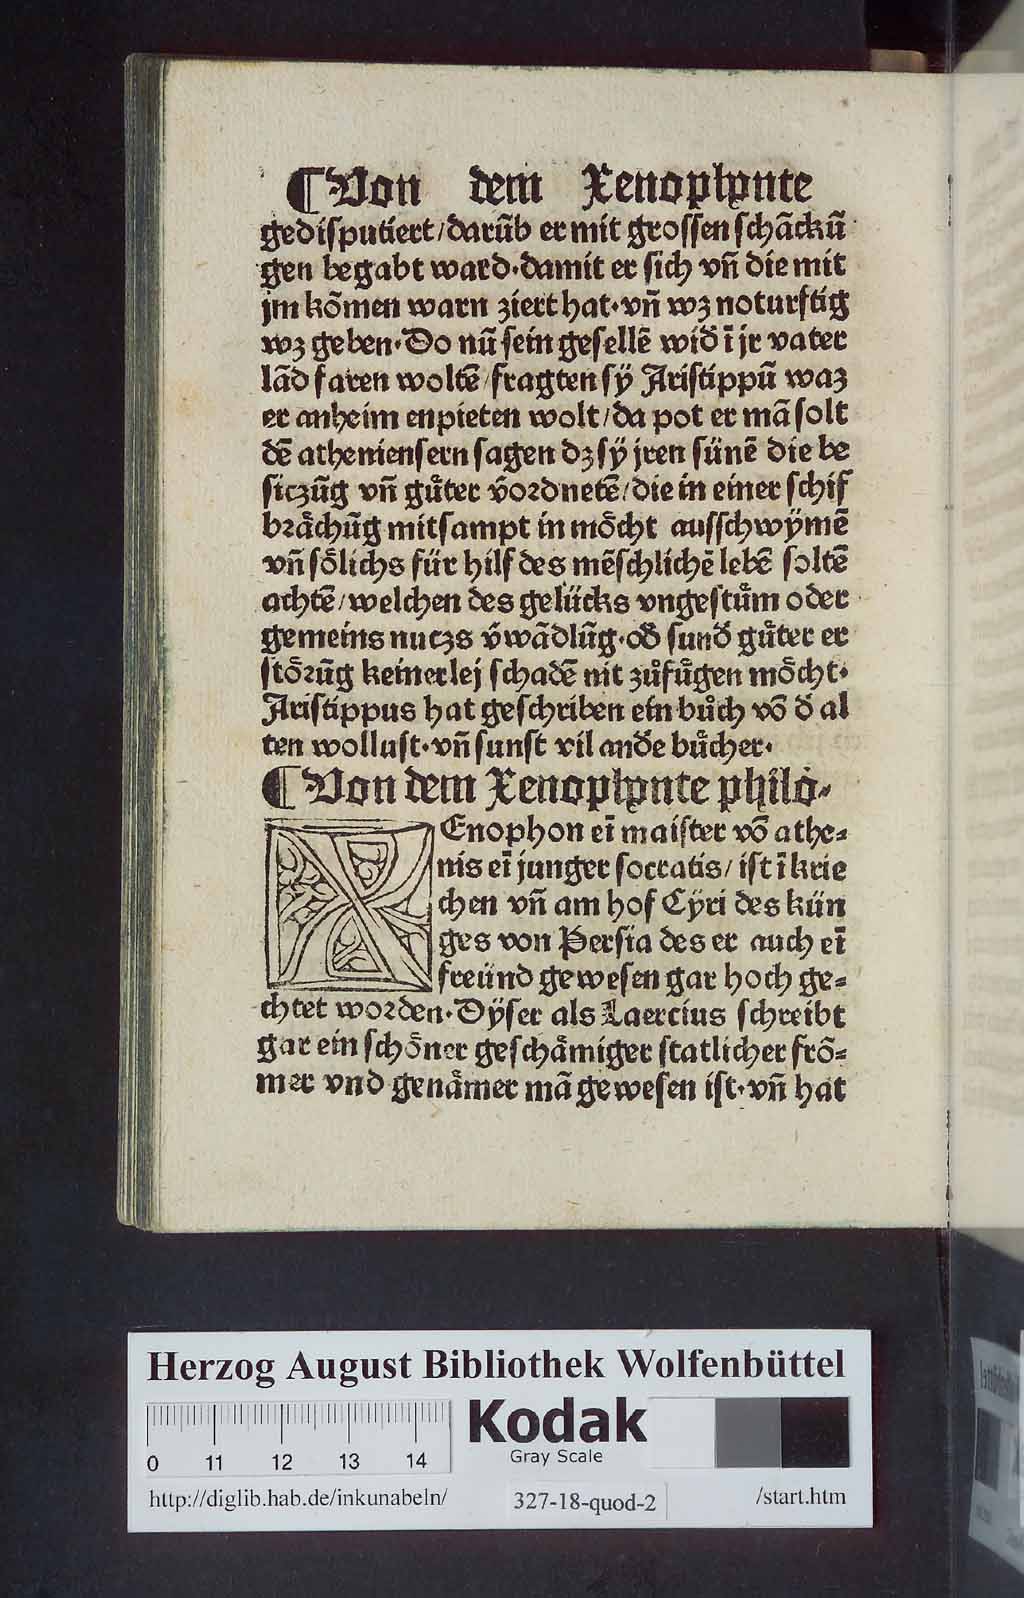 ¶ Von dem Xenophonte
gedisputiert/darūb er mit grossen schäckū
gen begabt ward·damit er sich vn̄ die mit
jm kōmen warn ziert hat·vn̄ wz noturftig
wz geben·Do nū sein gesellē wid̄ ī jr vater
lād faren woltē/fragten sÿ Aristippū waz
er anheim enpieten wolt/da pot er mā solt
dē atheniensern sagen dz sÿ jren sünē die be
siczūg vn̄ guͤter v̄ordnetē/die in einer schif
braͤchūg mitsampt in moͤcht ausschwÿmē
vn̄ soͤlichs für hilf des mēschlichē lebē soltē
achtē/welchen des gelücks vngestuͤm oder
gemeins nuczs v̄wādlūg·od̄ sund̄ guͤter er
stoͤrūg keinerlej schadē nit zuͦfuͤgen moͤcht·
Aristippus hat geschriben ein buͦch vō d̄ al
ten wollust·vn̄ sunst vil and̄e buͤcher·
¶ Von dem Xenophonte philo⸗
XEnophon eī maister vō athe⸗
nis eī junger socratis/ist ī krie
chen vn̄ am hof Cÿri des kün
ges von Persia des er auch eī
freünd gewesen gar hoch ge⸗
chtet worden·Dÿser als Laercius schreibt
gar ein schoͤner geschaͤmiger statlicher frō⸗
mer vnd genaͤmer mā gewesen ist·vn̄ hat
Herzog August Bibliothek Wolfenbüttel
Kodak
Gray Scale
0 11 12 13 14
http://diglib.hab.de/inkunabeln/ 327-18-quod-2 /start.htm